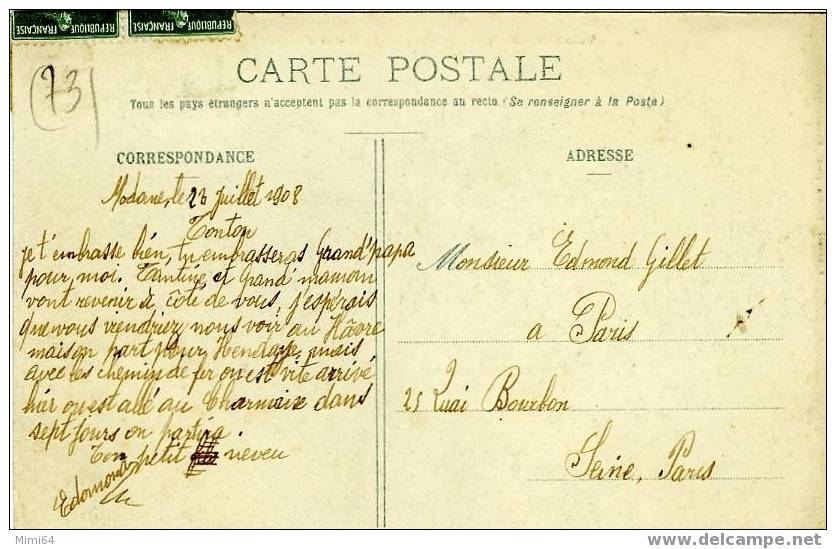 REPUBLIQUE FRANÇAISE
REPUBLIQUE FRANÇAISE
(73)
CARTE POSTALE
Tous les pays étrangers n'acceptent pas la correspondance au recto (Se renseigner à la Poste)
CORRESPONDANCE
Modane, le 23 Juillet 1908
Tonton
je t'embrasse bien, tu embrasseras Grand'papa
pour moi. Tantine et Grand' maman
vont revenir à côté de vous, j'espérais
que vous viendriez nous voir au Hâvre
maison part pour Hendaye, mais
avec les chemin de fer on est vite arrivé
hier on est allé au Charmaix dans
sept jours on partira.
Ton petit neveu
Edomond
ADRESSE
Monsieur Edmond Gillet
a Paris
25 Quai Bourbon
Seine, Paris
Mimi64
www.delcampe.net